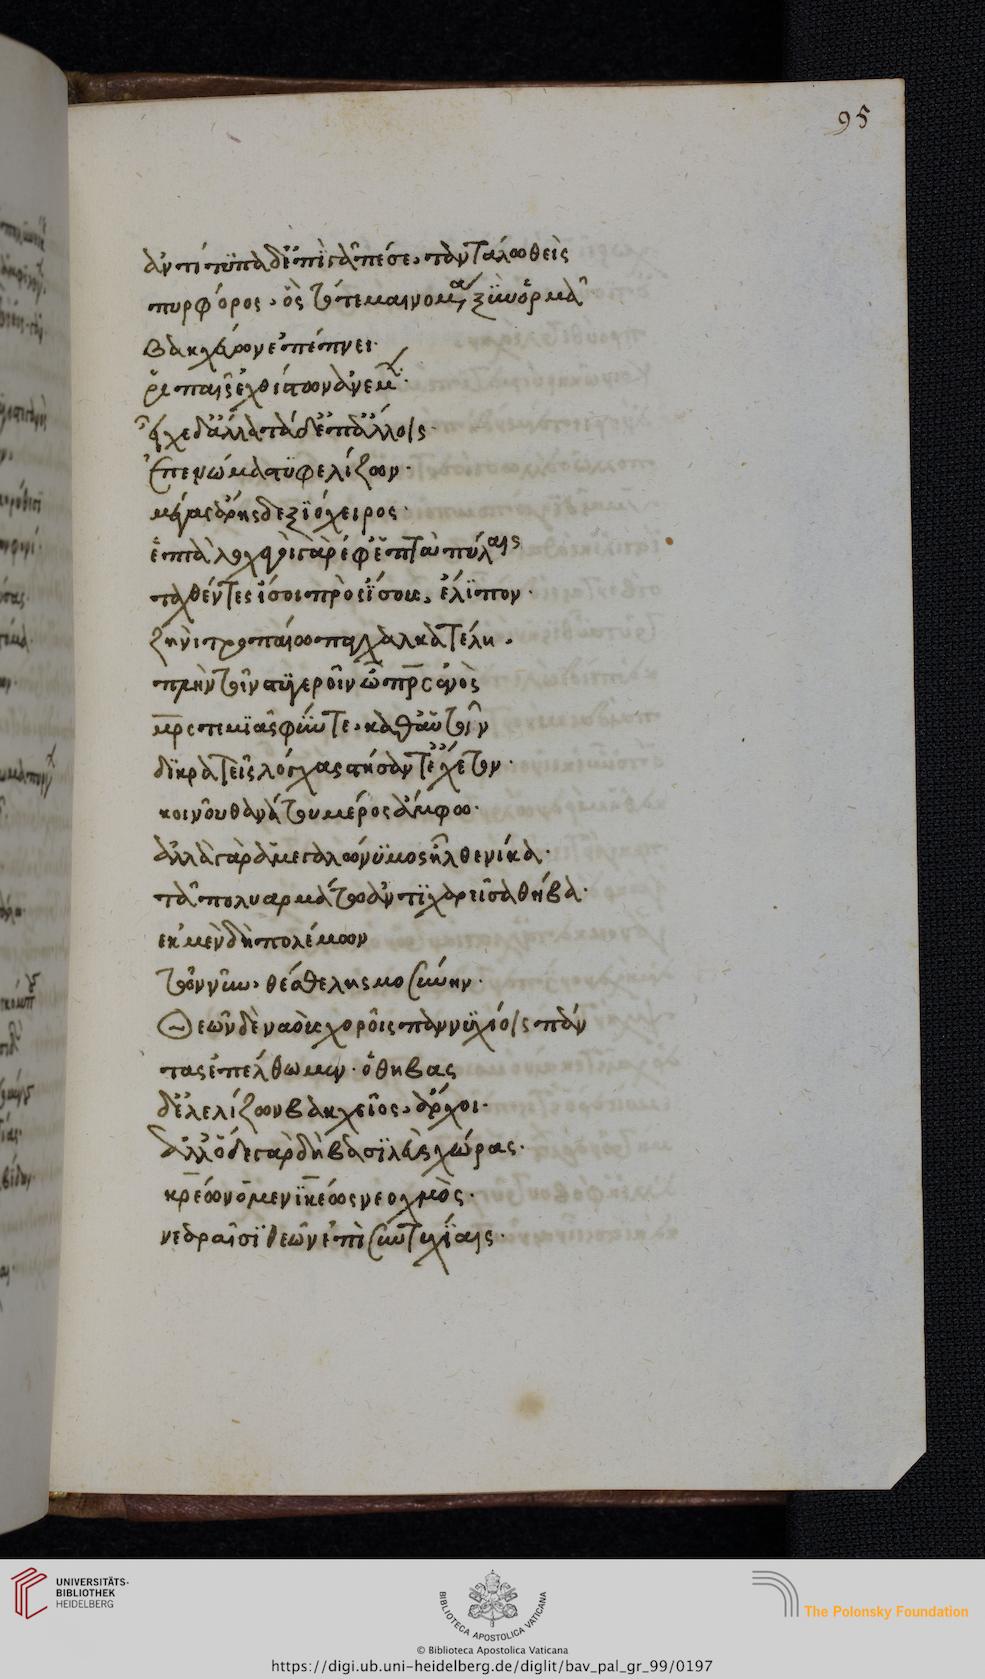 95
ἀντίτυπα δ' ἐπὶ γᾶ πέσε, τανταλωθεὶς
πυρφόρος, ὃς τότε μαινομένα ξὺν ὁρμᾶ
βακχεύων ἐπέπνει·
ῥιπαῖς ἐχθίστων ἀνέμων·
εἶχε δ' ἄλλα τὰ δ' ἐπ' ἄλλοις·
ἐπενώμα στυφελίζων·
μέγας ἄρης δεξιόχειρος·
ἑπτὰ λοχαγοὶ γὰρ ἐφ' ἑπτὰ πύλαις
ταχθέντες ἴσοι πρὸς ἴσους, ἔλιπον·
ζηνὶ τροπαίω παγχαλκα τέλη,
πλὴν τοῖν στυγεροῖν ὦ πρς ἑνὸς
μρς τε μιᾶς φύντε, καθ' αὑτοῖν
δικρατεῖς λόγχας στήσαντ' ἔχετον·
κοινοῦ θανάτου μέρος ἄμφω·
ἀλλὰ γὰρ ἁ μεγαλώνυμος ἦλθε νίκα·
τᾶ πολυαρμάτω ἀντιχαρεῖσα θήβα·
ἐκ μὲν δὴ πολέμων
τῶν νῦν, θέσθε λησμοσύνην·
Θεῶν δὲ ναοὺς χοροῖς παννυχίοις πάν
τας ἐπέλθωμεν· ὁ θήβας
δ' ἐλελίζων βακχεῖος, ἄρχοι·
ἀλλ' ὅδε γὰρ δὴ βασιλεὺς χώρας·
κρέων ὁ μενικέως νεοχμὸς·
νεδραῖσι θεῶν ἐπὶ συντυχίαις·
UNIVERSITÄTS-
BIBLIOTHEK
HEIDELBERG
BIBLIOTECA APOSTOLICA VATICANA
The Polonsky Foundation
© Biblioteca Apostolica Vaticana
https://digi.ub.uni-heidelberg.de/diglit/bav_pal_gr_99/0197